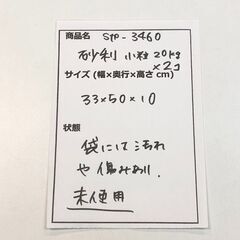 商品名 stp-3460
砂利 小粒 20kg
×2コ
サイズ (幅×奥行×高さ cm)
33×50×10
状態
袋にて汚れ
や傷みあり.
未使用